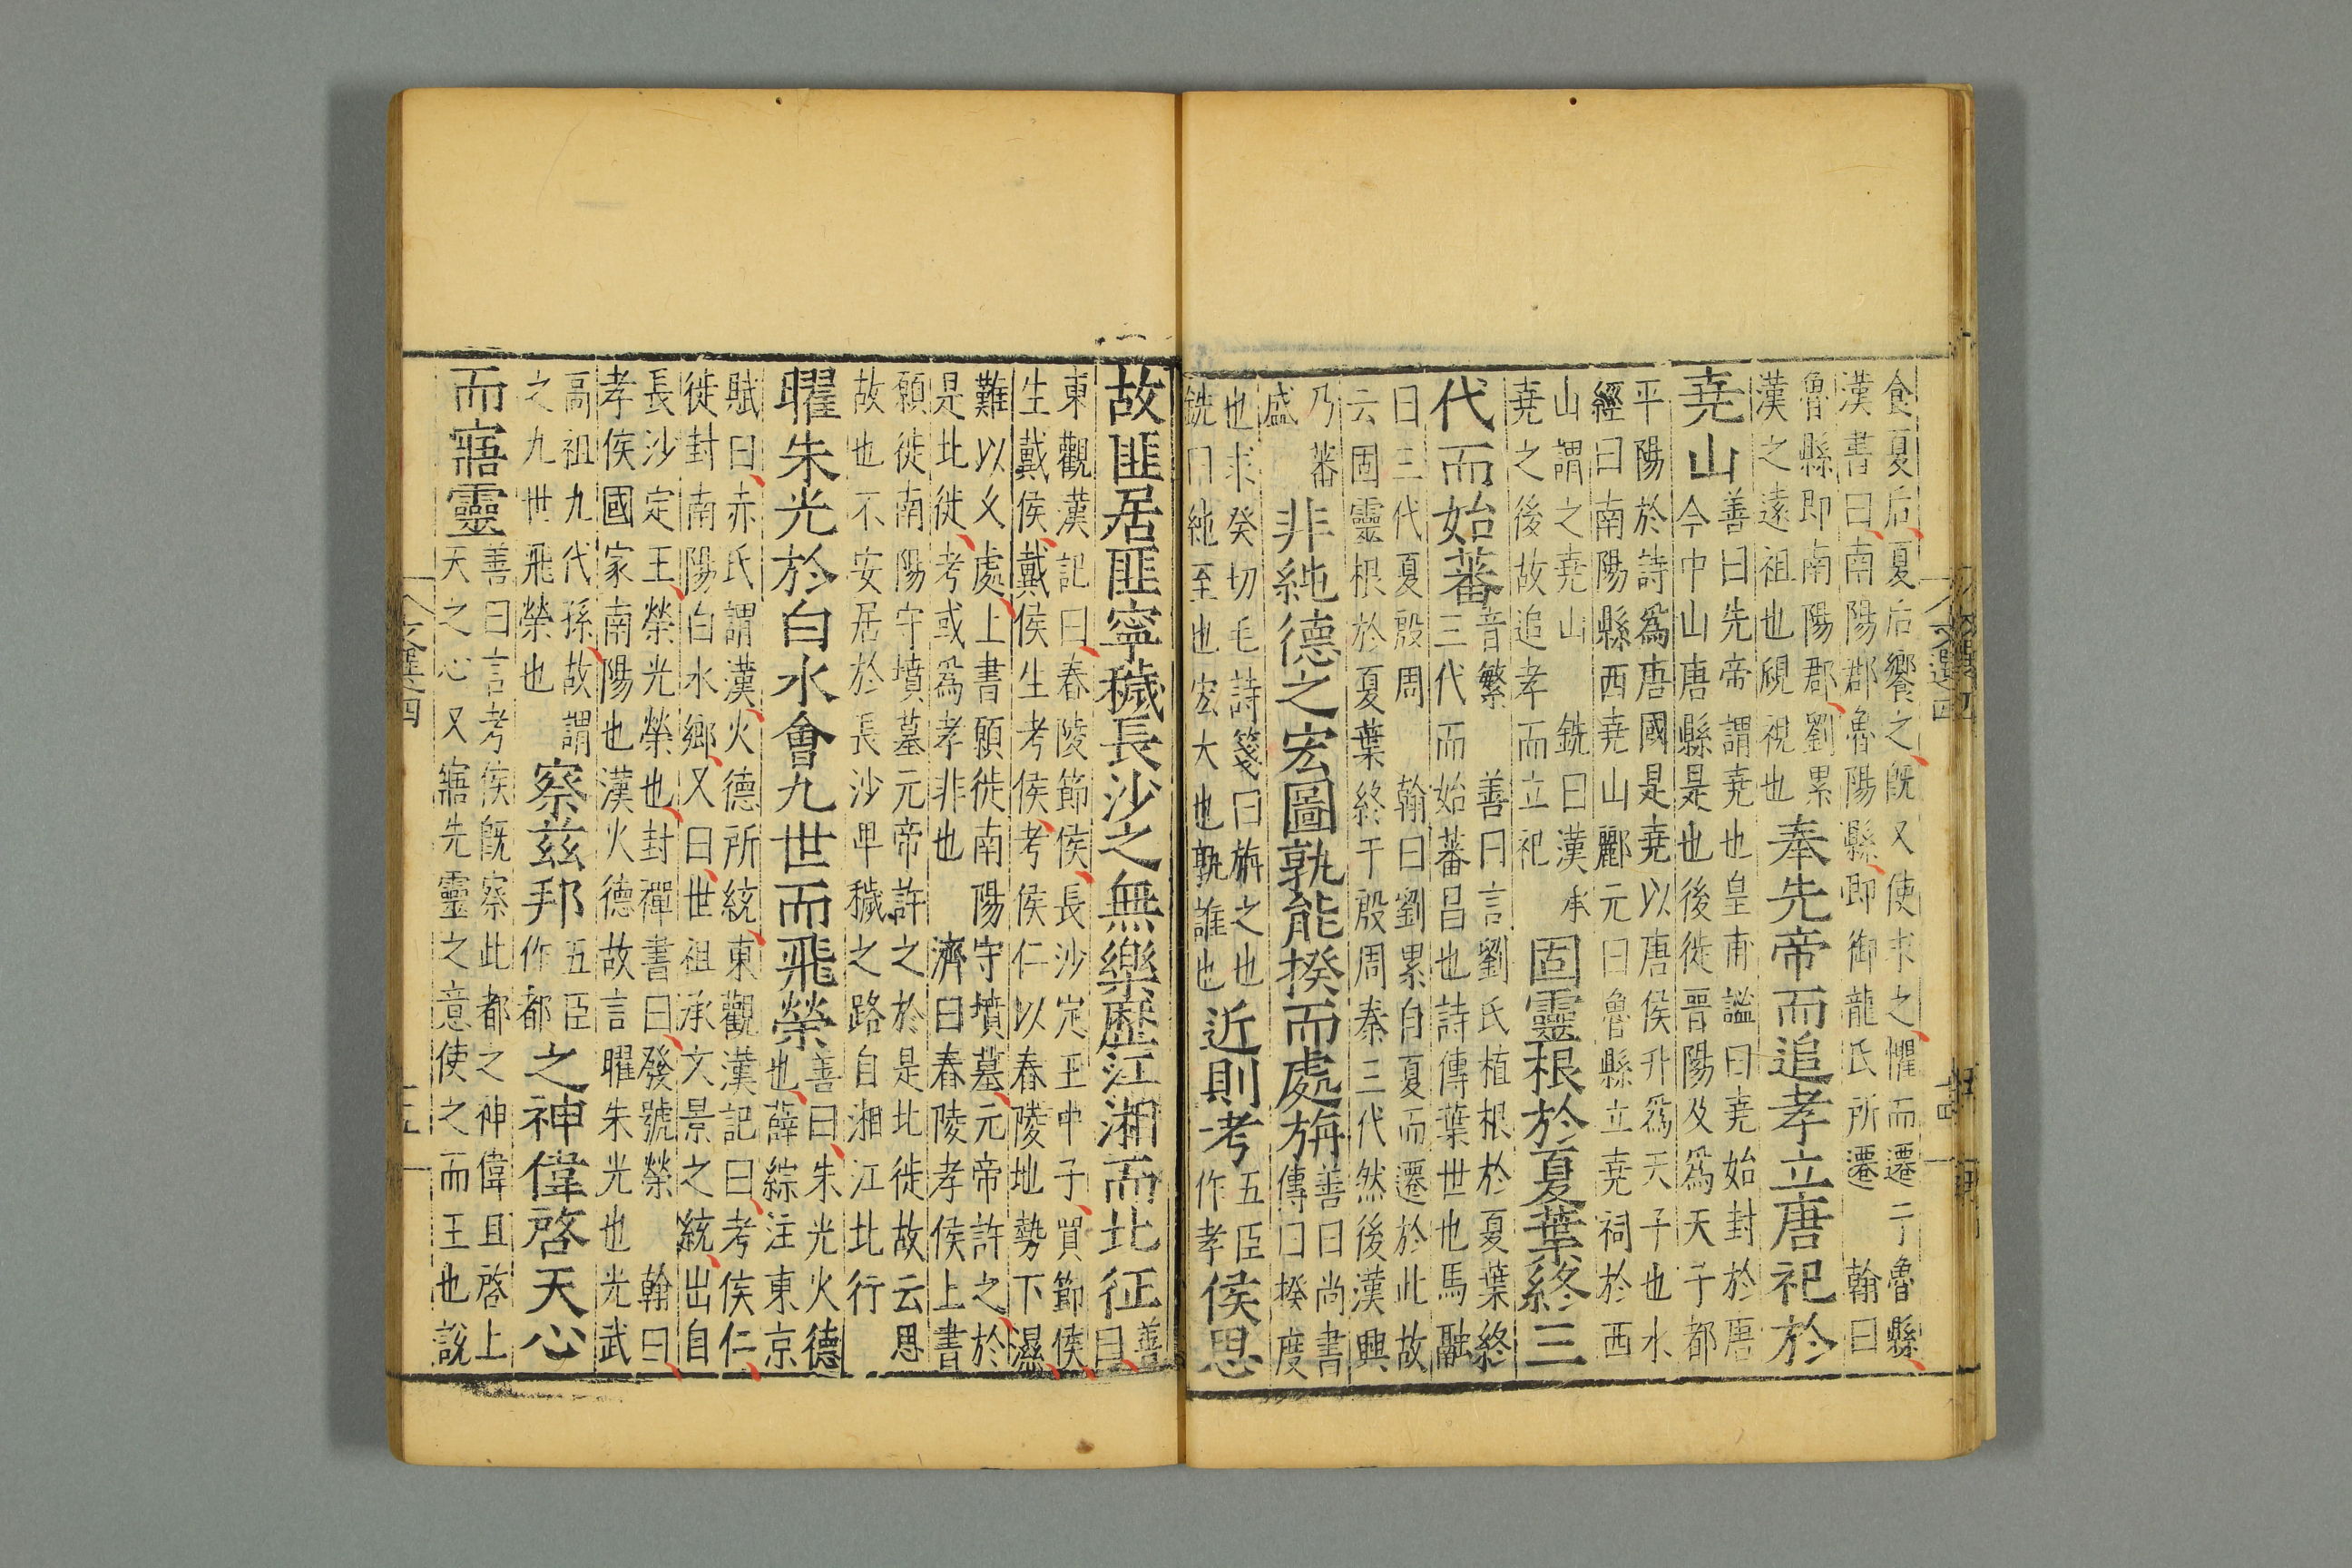 食夏后夏后饗之旣又使求之懼而遷于魯縣
漢書曰南陽郡魯陽縣即御龍氏所遷 翰曰
魯縣即南陽郡劉累
漢之遠祖也覛視也
奉先帝而追孝立唐祀於
尭山
善曰先帝謂尭也皇甫謐曰尭始封於唐
今中山唐縣是也後徙晉陽及爲天子都
平陽於詩爲唐國是尭以唐侯升爲天子也水
經曰南陽縣西尭山酈元曰魯縣立尭祠於西
山謂之尭山 銑曰漢承
尭之後故追孝而立祀
固靈根於夏葉終三
代而始蕃
音繁 善曰言劉氏植根於夏葉終
三代而始蕃昌也詩傳葉世也馬融
曰三代夏殷周 翰曰劉累自夏而遷於此故
云固靈根於夏葉終于殷周秦三代然後漢興
乃蕃
盛
非純德之宏圖孰能揆而處旃
善曰尚書
傳曰揆度
也求癸切毛詩箋曰旃之也
銑曰純至也宏大也孰誰也
近則考
五臣
作孝
侯思
故匪居匪寧穢長沙之無樂歷江湘而北征
善
曰
東觀漢記曰春陵節侯長沙定王中子買節侯
生戴侯戴侯生考侯考侯仁以春陵地勢下濕
難以乆處上書願徙南陽守墳墓元帝許之於
是北徙考或爲孝非也 濟曰春陵孝侯上書
願徙南陽守墳墓元帝許之於是北徙故云思
故也不安居於長沙卑穢之路自湘江北行
曜朱光於白水會九世而飛榮
善曰朱光火德
也薛綜注東京
賦曰赤氏謂漢火德所統東觀漢記曰考侯仁
徙封南陽白水鄉又曰世祖承文景之統出自
長沙定王榮光榮也封禪書曰發號榮 翰曰
孝侯國家南陽也漢火德故言曜朱光也光武
高祖九代孫故謂
之九世飛榮也
察茲邦
五臣
作都
之神偉啓天心
而寤靈
善曰言考侯旣察此都之神偉且啓上
天之心又寤先靈之意使之而王也說